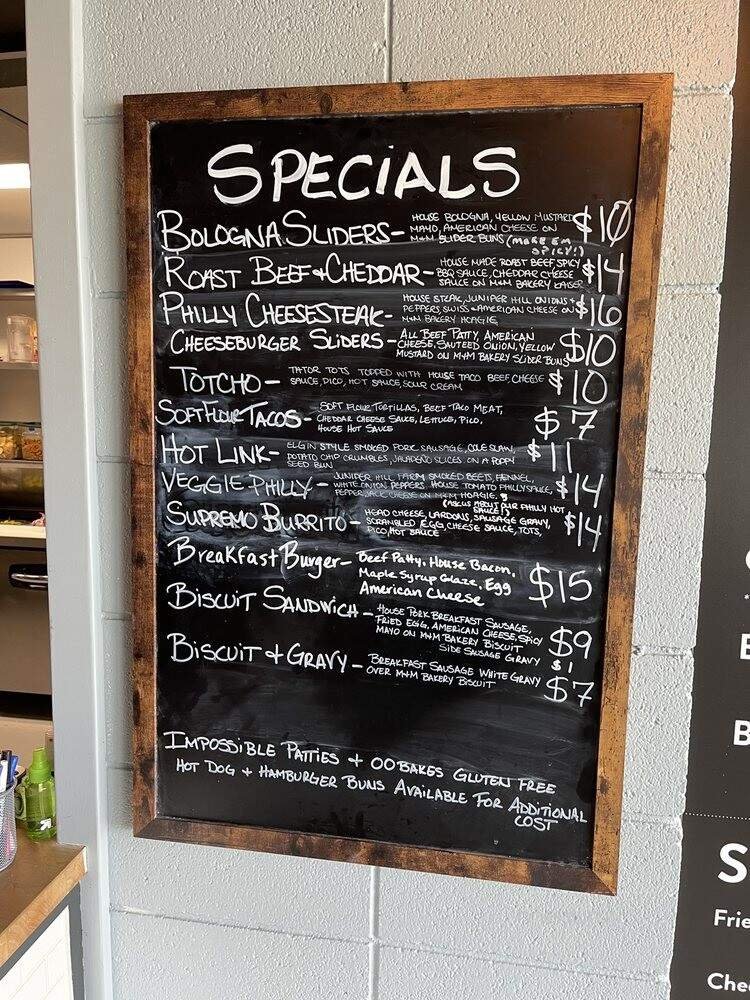 SPECiALS
BOLOGNA SLIDERS- HOUSE BOLOGNA, YELLOW MUSTARD $10
MAYO, AMERICAN CHEESE ON
M+M SLIDER BUNS (MAKE EM SPICY!)
ROAST BEEF + CHEDDAR- HOUSE MADE ROAST BEEF, SPICY $14
BBQ SAUCE, CHEDDAR CHEESE
SAUCE ON M+M BAKERY KAISER
PHILLY CHEESESTEAK- HOUSE STEAK, JUNIPER HILL ONIONS + $16
PEPPERS, SWISS + AMERICAN CHEESE ON
M+M BAKERY HOAGIE,
CHEESEBURGER SLIDERS- ALL BEEF PATTY, AMERICAN $10
CHEESE, SAUTEED ONION, YELLOW
MUSTARD ON M+M BAKERY SLIDER BUNS
TOTCHO- TATOR TOTS TOPPED WITH HOUSE TACO BEEF, CHEESE $10
SAUCE, PICO, HOT SAUCE, SOUR CREAM
SOFT FLOUR TACOS- SOFT FLOUR TORTILLAS, BEEF TACO MEAT, $7
CHEDDAR CHEESE SAUCE, LETTUCE, PICO,
HOUSE HOT SAUCE
HOT LINK- ELGIN STYLE SMOKED PORK SAUSAGE, COLE SLAW, $11
POTATO CHIP CRUMBLES, JALAPEÑO SLICES ON A POPPY
SEED BUN
VEGGIE PHILLY- JUNIPER HILL FARM SMOKED BEETS, FENNEL, $14
WHITE ONION PEPPERS, HOUSE TOMATO PHILLY SAUCE,
PEPPERJACK CHEESE ON M+M HOAGIE,
(ASK US ABOUT OUR PHILLY HOT SAUCE!)
SUPREMO BURRITO- HEAD CHEESE, LARDONS, SAUSAGE GRAVY, $14
SCRAMBLED EGG, CHEESE SAUCE, TOTS,
PICO, HOT SAUCE
BreakFast Burger- Beef Patty, House Bacon, $15
Maple Syrup Glaze, Egg
American Cheese
BISCUIT SANDWICH- HOUSE PORK BREAKFAST SAUSAGE, $9
FRIED EGG, AMERICAN CHEESE, SPICY
MAYO ON M+M BAKERY BISCUIT
SIDE SAUSAGE GRAVY $1
BISCUIT + GRAVY- BREAKFAST SAUSAGE WHITE GRAVY $7
OVER M+M BAKERY BISCUIT
IMPOSSIBLE PATTIES + OOBAKES GLUTEN FREE
HOT DOG + HAMBURGER BUNS AVAILABLE FOR ADDITIONAL
COST
S
Frie
Chee